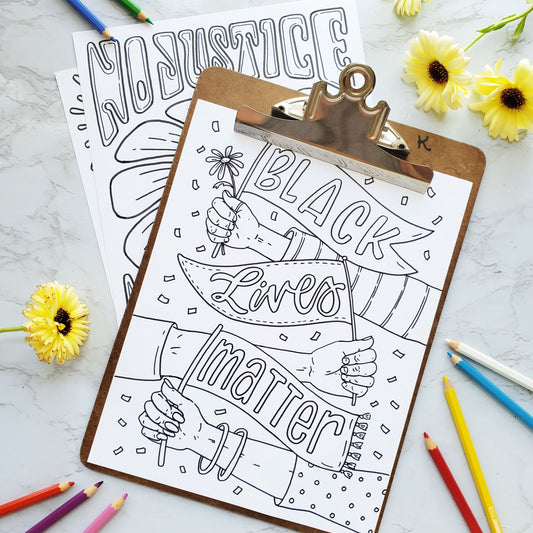 NO JUSTICE
BLACK
Lives
matter
K